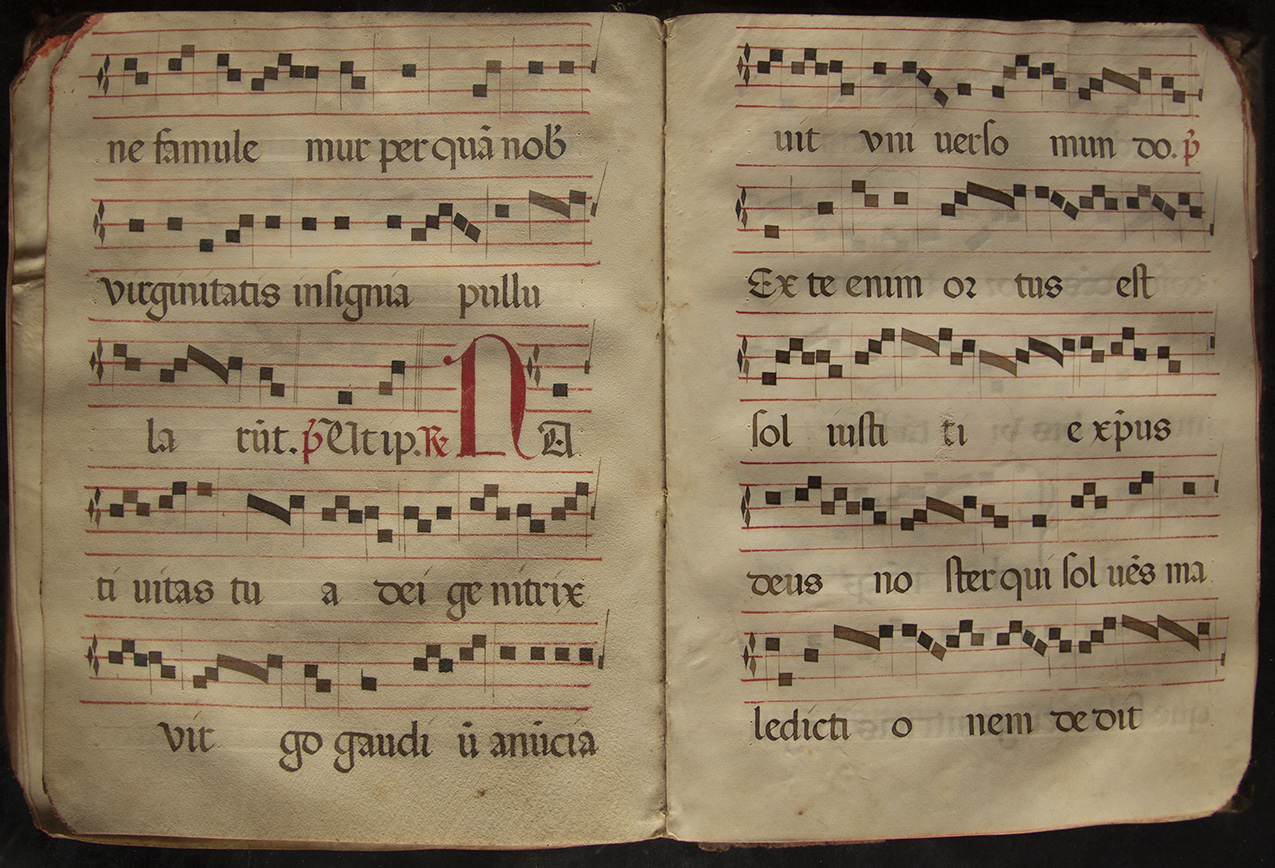 ne famule mur per quā nob̄
virginitatis insignia pullu
la rūt. p̄ Ut ip. ℟ N A
ti uitas tu a dei ge nitrix
vir go gaudi ū anūcia
uit vni uerso mun do. p̄
Ex te enim or tus est
sol iusti ti e xp̄us
deus no ster qui sol uēs ma
ledicti o nem de dit